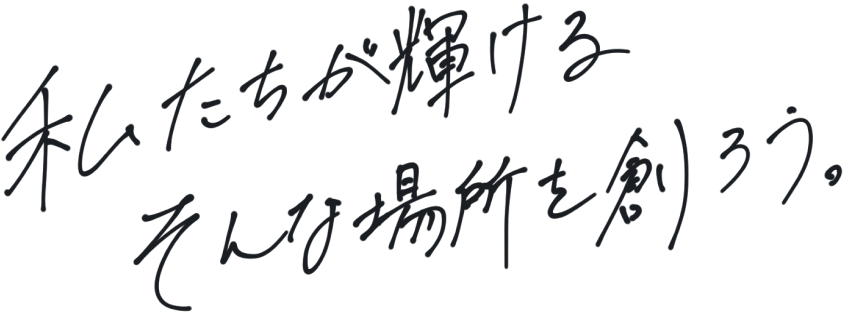 私たちが輝ける
そんな場所を創ろう。